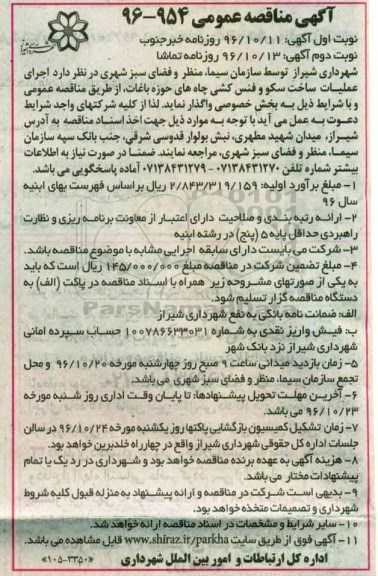 آگهی مناقصه عمومی ۹۵۴-۹۶
نوبت اول آگهی: ۹۶/۱۰/۱۱ روزنامه خبرجنوب
نوبت دوم آگهی: ۹۶/۱۰/۱۳ روزنامه تماشا
شهرداری شیراز توسط سازمان سیما، منظر و فضای سبز شهری در نظر دارد اجرای
عملیات ساخت سکو و فنس کشی چاه های حوزه باغات، از طریق مناقصه عمومی
و با شرایط ذیل به بخش خصوصی واگذار نماید. لذا از کلیه شرکتهای واجد شرایط
دعوت به عمل می آید با توجه به موارد ذیل جهت اخذ اسناد مناقصه به آدرس
شیراز، میدان شهید مطهری، نبش بولوار قدوسی شرقی، جنب بانک سپه سازمان
سیما، منظر و فضای سبز شهری، مراجعه نمایند. ضمنا در صورت نیاز به اطلاعات
بیشتر شماره تلفن ۰۷۱۳۸۴۳۱۲۷۰-۰۷۱۳۸۴۳۱۲۷۹ آماده پاسخگویی می باشد.
۱- مبلغ برآورد اولیه: ۲/۸۴۳/۳۱۹/۱۵۹ ریال بر اساس فهرست بهای ابنیه
سال ۹۶
۲- ارائه رتبه بندی و صلاحیت دارای اعتبار از معاونت برنامه ریزی و نظارت
راهبردی حداقل پایه ۵ (پنج) در رشته ابنیه
۳- شرکت می بایست دارای سابقه اجرایی مشابه با موضوع مناقصه باشد.
۴- مبلغ تضمین شرکت در مناقصه مبلغ ۱۴۵/۰۰۰/۰۰۰ ریال است که باید
به یکی از صورتهای مشروحه زیر همراه با اسناد مناقصه در پاکت (الف) به
دستگاه مناقصه گزار تسلیم شود.
الف: ضمانت نامه بانکی به نفع شهرداری شیراز
ب: فیش واریز نقدی به شماره ۱۰۰۷۸۶۶۳۳۰۳۱ حساب سپرده امانی
شهرداری شیراز نزد بانک شهر
۵- زمان بازدید میدانی ساعت ۹ صبح روز چهارشنبه مورخه ۹۶/۱۰/۲۰ و محل
تجمع سازمان سیما، منظر و فضای سبز شهری می باشد.
۶- آخرین مهلت تحویل پیشنهادها: تا پایان وقت اداری روز شنبه مورخه
۹۶/۱۰/۲۳ می باشد.
۷- زمان تشکیل کمیسیون بازگشایی پاکتها روز یکشنبه مورخه ۹۶/۱۰/۲۴ در سالن
جلسات اداره کل حقوقی شهرداری شیراز واقع در چهارراه خلدبرین خواهد بود.
۸- هزینه آگهی به عهده برنده مناقصه خواهد بود و شهرداری در رد یک یا تمام
پیشنهادات مختار می باشد.
۹- بدیهی است شرکت در مناقصه و ارائه پیشنهاد به منزله قبول کلیه شروط
شهرداری و تصمیمات متخذه خواهد بود.
۱۰- سایر شرایط و مشخصات در اسناد مناقصه ارائه خواهد شد.
۱۱- آگهی فوق از طریق سایت www.shiraz.ir/parkha قابل مشاهده می باشد.
اداره کل ارتباطات و امور بین الملل شهرداری «۱۰۵-۳۳۵۰»